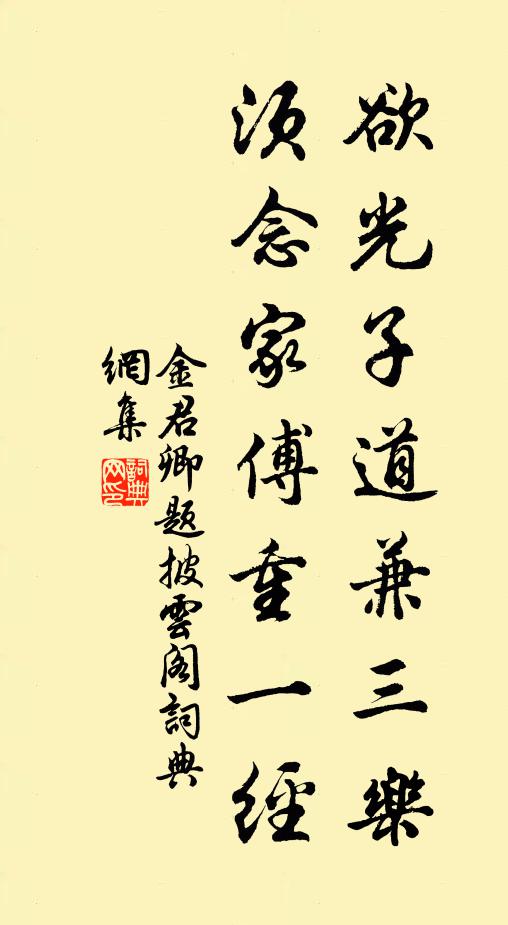 欲光子道兼三樂
須念家傅重一經
金君卿題披雲閣詞典
網集
詞典
网印